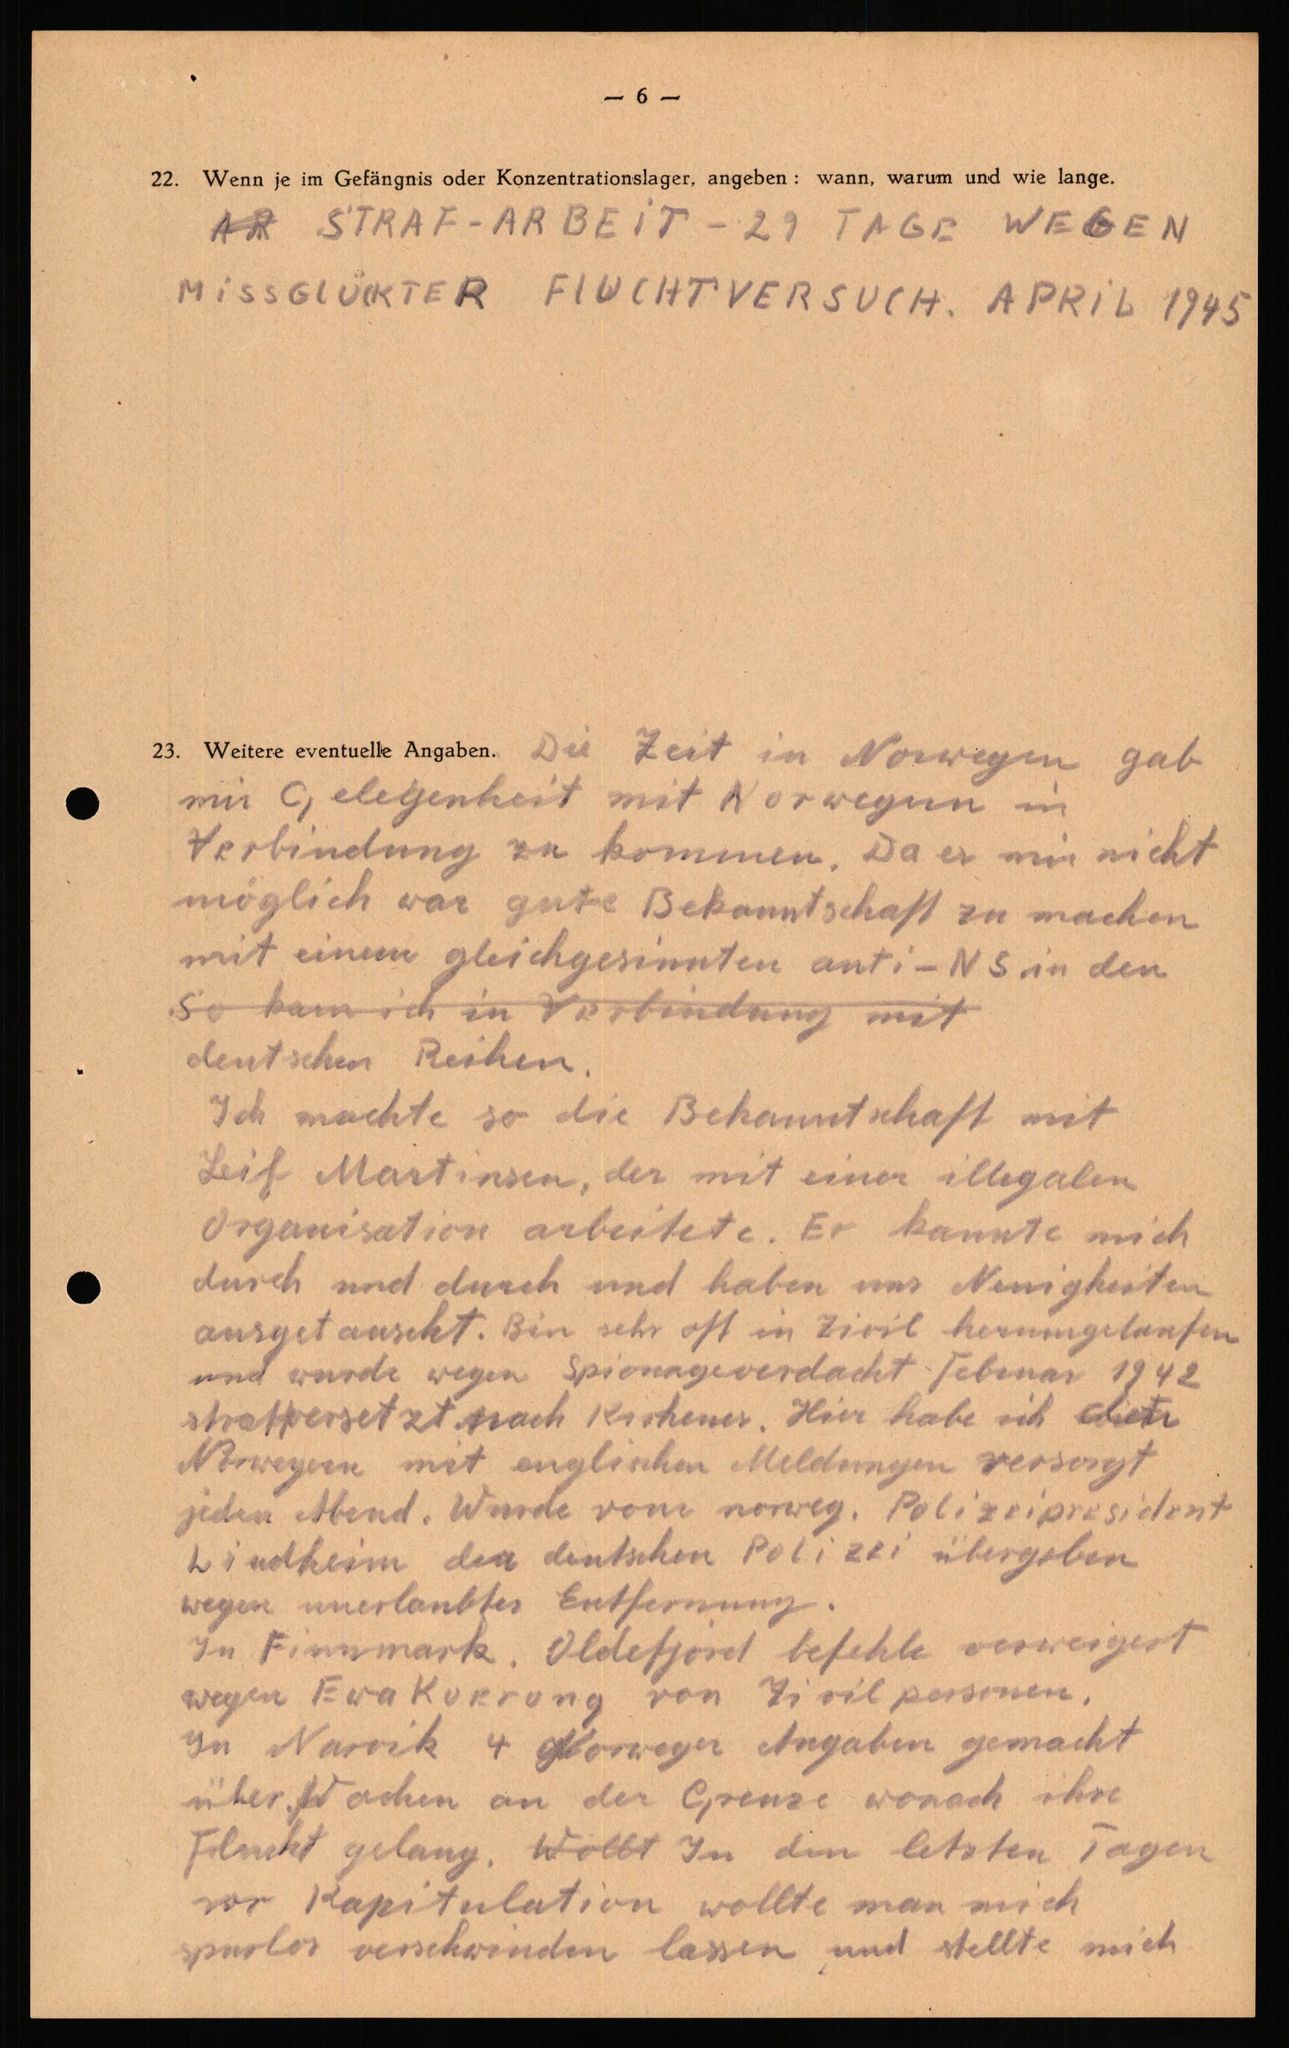 — 6 —
22. Wenn je im Gefängnis oder Konzentrationslager, angeben: wann, warum und wie lange.
STRAF-ARBEIT - 29 TAGE WEGEN
MISSGLÜCKTER FlUCHTVERSUCH. APRIL 1945
23. Weitere eventuelle Angaben. Die Zeit in Norwegen gab
mir Gelegenheit mit Norwegern in
Verbindung zu kommen. Da er mir nicht
möglich war gute Bekanntschaft zu machen
mit einem gleichgesinnten anti-NS in den
So kam ich in Verbindung mit
deutschen Reihen.
Ich machte so die Bekanntschaft mit
Leif Martinsen, der mit einer illegalen
Organisation arbeitete. Er kannte mich
durch und durch und haben uns Neuigkeiten
ausgetauscht. Bin sehr oft in Zivil herumgelaufen
und wurde wegen Spionageverdacht Februar 1942
strafversetzt nach Kirkenes. Hier habe ich
Norwegern mit englischen Meldungen versorgt
jeden Abend. Wurde vom norweg. Polizeipresident
Lindheim der deutschen Polizei übergeben
wegen unerlaubter Entfernung.
In Finnmark. Oldefjord befehle verweigert
wegen Ewakuerung von Zivilpersonen.
In Narvik 4 Norweger Angaben gemacht
über Wachen an der Grenze wonach ihre
Flucht gelang. Wollt In den letzten Tagen
vor Kapitulation wollte man mich
spurlos verschwinden lassen und stellte mich